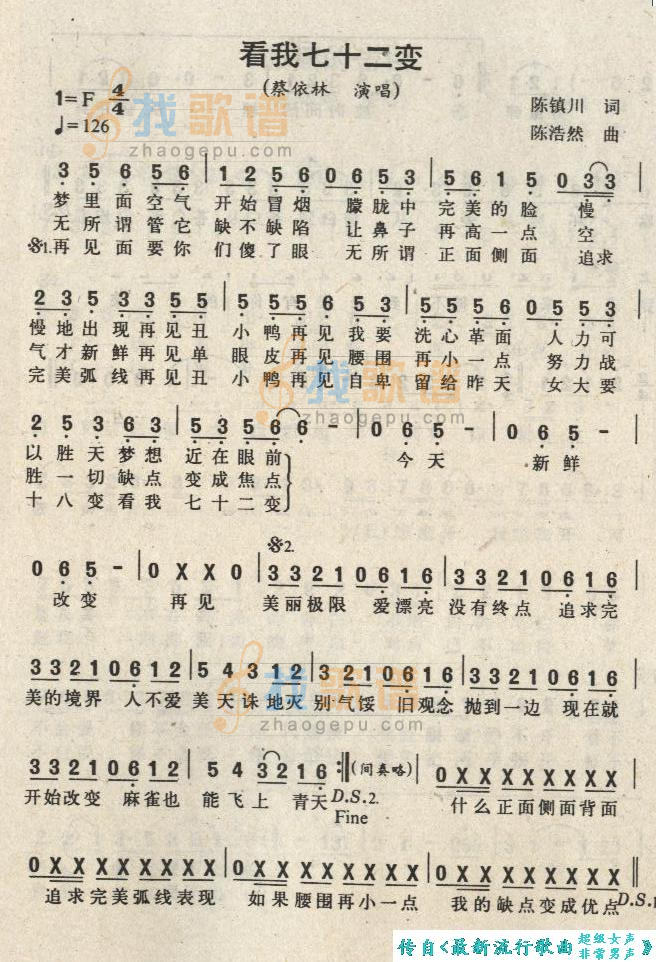 看我七十二变
(蔡依林 演唱)
1=F 4/4
♩=126
陈镇川 词
陈浩然 曲
找歌谱
zhaogepu.com
3 5 6 5 6 | 1 2 5 6 0 6 5 3 | 5 6 1 5 0 3 3 |
梦里面空气 开始冒烟 朦胧中 完美的脸 慢
无所谓管它 缺不缺陷 让鼻子 再高一点 空
𝄋1.再见面要你 们傻了眼 无所谓 正面侧面 追求
2 3 5 3 3 5 5 | 5 3 5 6 6 5 3 | 5 5 5 6 0 5 5 3 |
慢地出现再见丑 小鸭再见我要 洗心革面 人力可
气才新鲜再见单 眼皮再见腰围 再小一点 努力战
完美弧线再见丑 小鸭再见自卑 留给昨天 女大要
找歌谱
zhaogepu.com
2 5 3 6 3 | 5 3 5 6 6 - | 0 6 5 - | 0 6 5 - |
以胜天梦想 近在眼前 今天 新鲜
胜一切缺点 变成焦点
十八变看我 七十二变
𝄋2.
0 6 5 - | 0 X X 0 | 3 3 2 1 0 6 1 6 | 3 3 2 1 0 6 1 6 |
改变 再见 美丽极限 爱漂亮 没有终点 追求完
3 3 2 1 0 6 1 2 | 5 4 3 1 2 | 3 2 1 0 6 1 6 | 3 3 2 1 0 6 1 6 |
美的境界 人不爱 美天诛地灭 别气馁 旧观念 抛到一边 现在就
找歌谱
zhaogepu.com
3 3 2 1 0 6 1 2 | 5 4 3 2 1 6 :‖ (间奏略) | 0 X X X X X X X X |
开始改变 麻雀也 能飞上 青天 D.S.2. 什么正面侧面背面
Fine
0 X X X X X X X X | 0 X X X X X X X | 0 X X X X X X X X ‖
追求完美弧线表现 如果腰围再小一点 我的缺点变成优点 D.S.1
传自《最新流行歌曲 超级女声 非常男声》